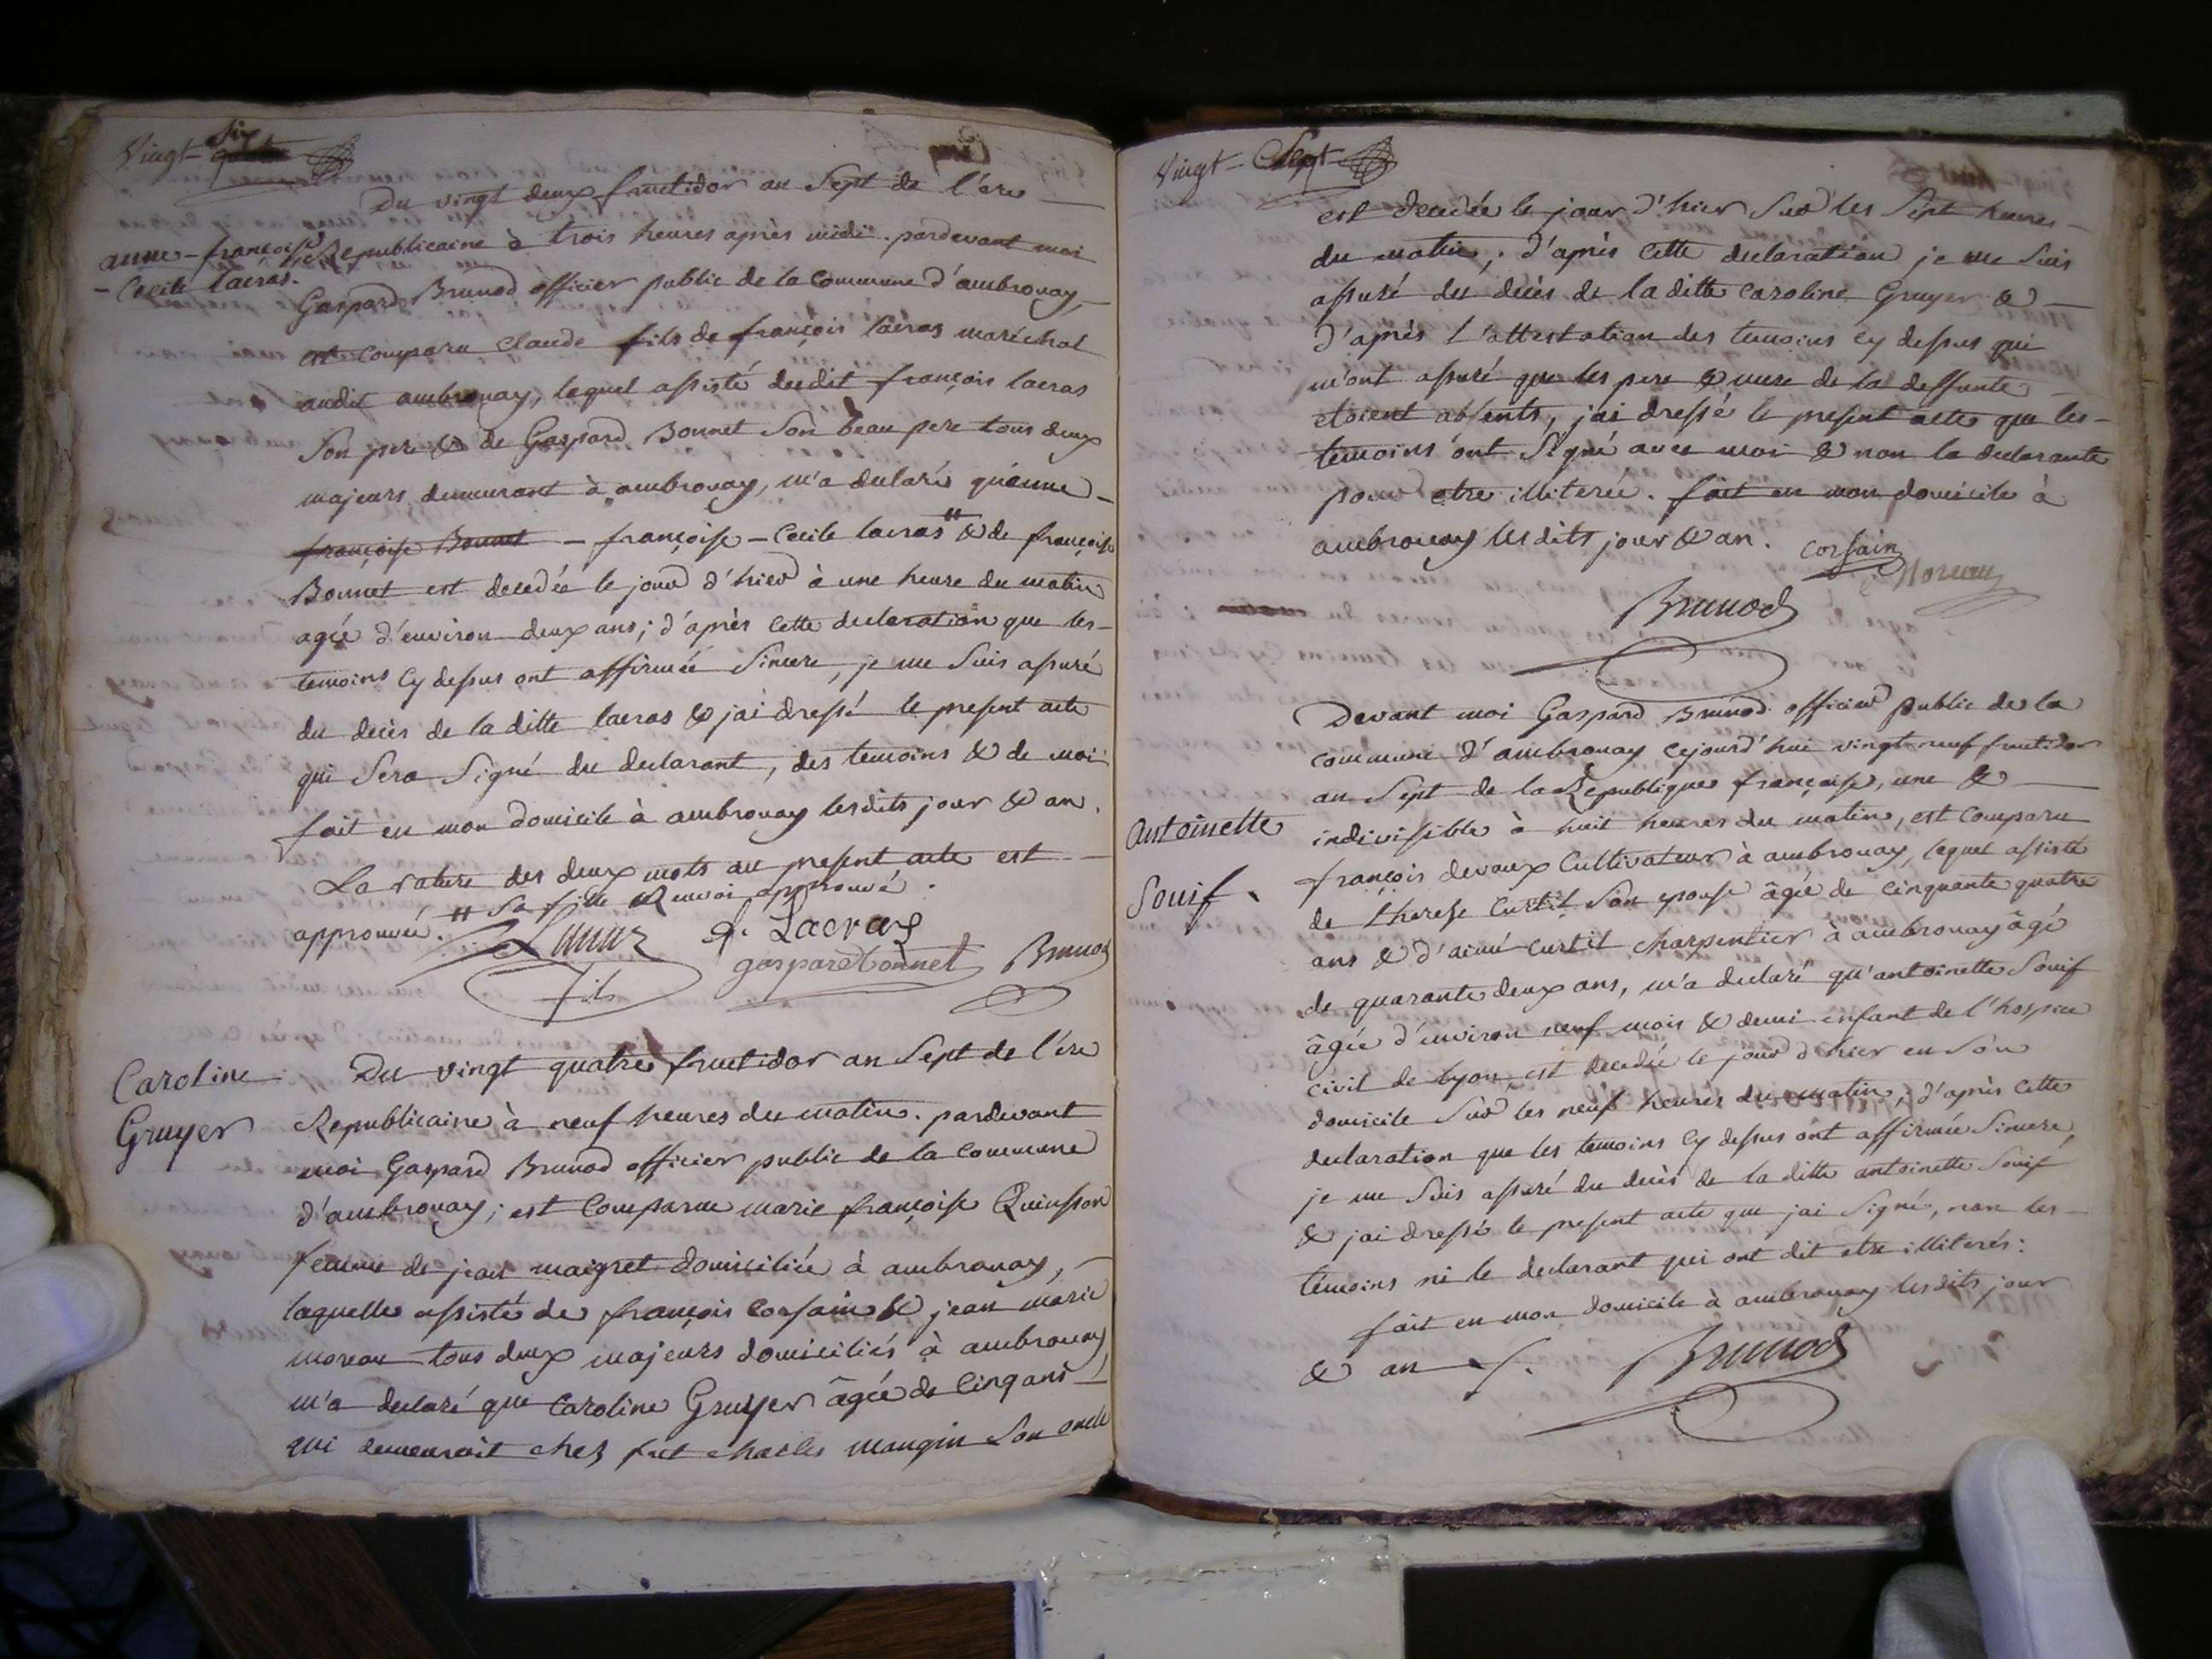 Vingt-Six
Du vingt deux fructidor an Sept de l'ere
anne-françoise
-Cecile lacras.
Republicaine à trois heures après midi. pardevant moi
Gaspard Brunod officier public de la Commune d'ambronay,
est Comparu Claude fils de françois lacras maréchal
audit ambronay, lequel assisté dudit françois lacras
Son pere & de Gaspard Bonnet Son beau pere tous deux
majeurs demeurant à ambronay, m'a declaré qu'anne
françoise Bonnet - françoise - Cecile lacras " & de françoise
Bonnet est decedée le jour d'hier à une heure du matin
agée d'environ deux ans; d'après Cette declaration que les
temoins Cy dessus ont affirmée Sincere, je me Suis assuré
du decès de la ditte lacras & jai dressé le present acte
qui Sera Signé du declarant, des temoins & de moi
fait en mon domicile à ambronay lesdits jour & an.
La rature des deux mots au present acte est
approuvée. " Sa fille Renvoi approuvé.
fils
Lacras
gaspard bonnet
Brunod
Caroline
Gruyer
Du vingt quatre fructidor an Sept de l'ère
Republicaine à neuf heures du matin. pardevant
moi Gaspard Brunod officier public de la Commune
d'ambronay; est Comparue marie françoise Quinsson
femme de jean maigret domiciliée à ambronay,
laquelle assisté de françois Corsain & jean marie
moreau tous deux majeurs domiciliés à ambronay
m'a declaré que Caroline Gruyer âgée de Cinq ans
qui demeuroit chez fut charles mangin Son oncle
Vingt-Sept
est decedée le jour d'hier Sur les Sept heures
du matin; d'après Cette declaration je me Suis
assuré du decès de la ditte Caroline Gruyer &
d'après L'attestation des temoins Cy dessus qui
m'ont assuré que les pere & mere de la deffunte
etoient absents, jai dressé le present acte que les
temoins ont Signé avec moi & non la declarante
pour etre illiterée. fait en mon domicile à
ambronay lesdits jour & an.
Corsain
Moreau
Brunod
Antoinette
Souif.
Devant moi Gaspard Brunod officier public de la
commune d'ambronay cejourd'hui vingt neuf fructidor
an Sept de la Republique française, une &
indivisible à huit heures du matin, est Comparu
françois devaux Cultivateur à ambronay, lequel assisté
de therese Curtil Son epouse âgée de Cinquante quatre
ans & d'aimé Curtil charpentier à ambronay âgé
de quarante deux ans, m'a declaré qu'antoinette Souif
âgée d'environ neuf mois & demi enfant de l'hospice
civil de lyon est decedée le jour d'hier en Son
domicile Sur les neuf heures du matin; d'après Cette
declaration que les temoins Cy dessus ont affirmée Sincere,
je me Suis assuré du decès de la ditte antoinette Souif
& jai dressé le present acte que jai Signé, non les
témoins ni le declarant qui ont dit etre illiterés:
fait en mon domicile à ambronay lesdits jour
& an
Brunod